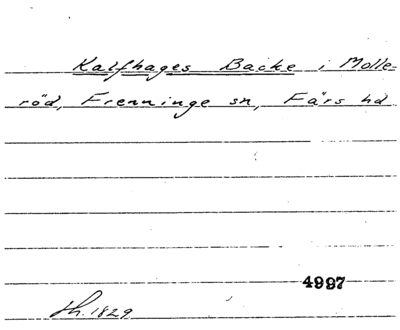 Kalfhages Backe i Molle-
röd, Frenninge sn, Färs hd
4997
Th. 1829